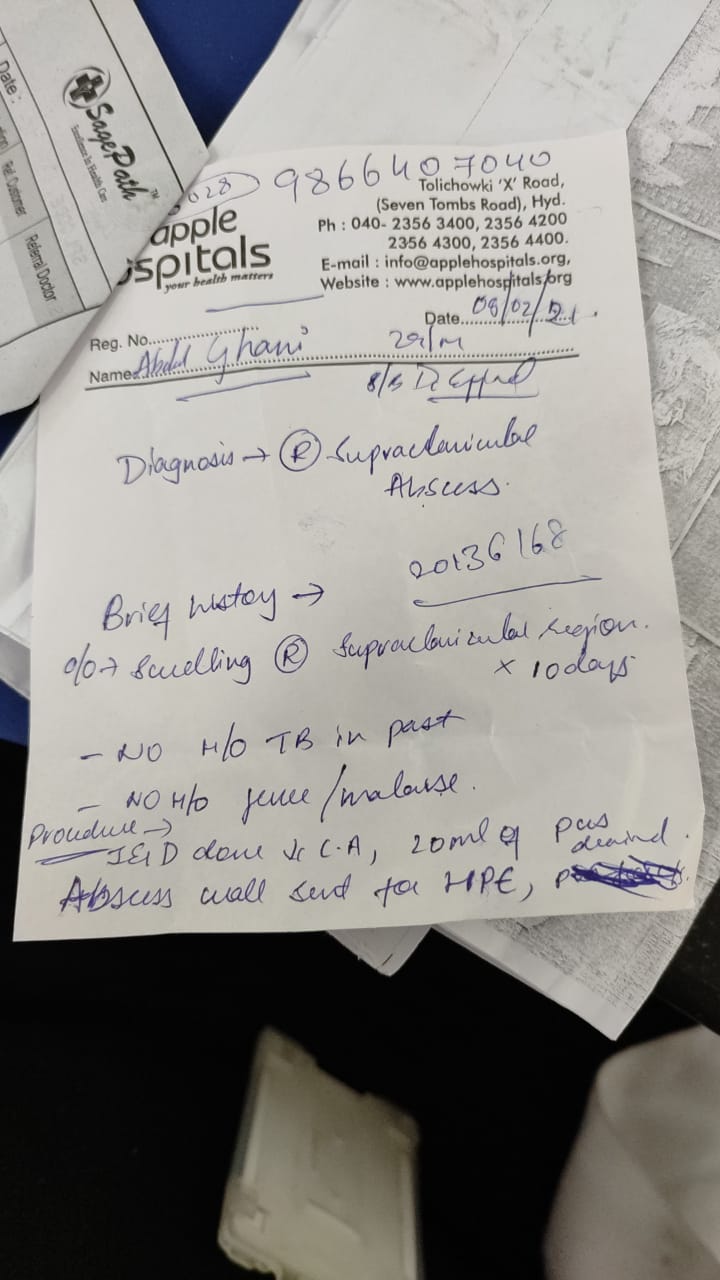 Date :
SagePath™
Excellence In Health Care
Ref. Customer
Referral Doctor
028 9866407040
apple
spitals
your health matters
Tolichowki 'X' Road,
(Seven Tombs Road), Hyd.
Ph : 040- 2356 3400, 2356 4200
2356 4300, 2356 4400.
E-mail : info@applehospitals.org,
Website : www.applehospitals.org
Reg. No.
Date 08/02/21.
Name: Abdul Ghani /M
Diagnosis → (R) Supraclavicular
Abscess.
20136168
Brief history →
c/o → Swelling (R) Supraclavicular region.
x 10 days
- NO H/o TB in past
- NO H/o fever/malaise.
Procedure →
I & D done C.A, 20ml of pus
drained.
Abscess wall sent for HPE,